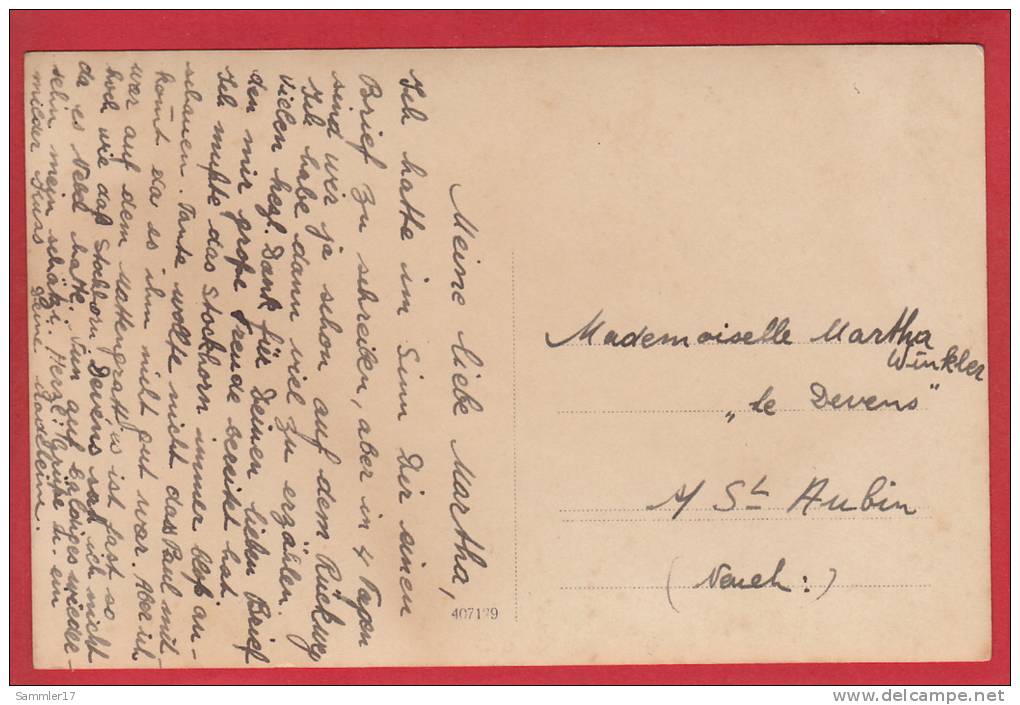 Meine liebe Martha,
Ich hatte im Sinn Dir einen
Brief zu schreiben, aber in 4 Tagen
sind wir ja schon auf dem Rückweg
Ich habe dann viel zu erzählen.
Vielen hezl. Dank für Deinen lieben Brief
den mir große Freude bereitet hat.
Ich mußte das Stockhorn immer bloß an-
schauen. Tante wollte nicht dass Paul mit-
kommt da es ihm nicht gut war. Aber ich
war auf dem ist fast so
hoch wie daß Stockhorn, Devens sah ich nicht
da es Nebel hatte. Nun auf baldiges wieder-
sehn mein schätzi. Herzl. Grüße u. ein
milder Kuss Deine
Mademoiselle Martha
Winkler
„le Devens"
s/ St Aubin
(Neuch:)
407139
Sammler17
www.delcampe.net